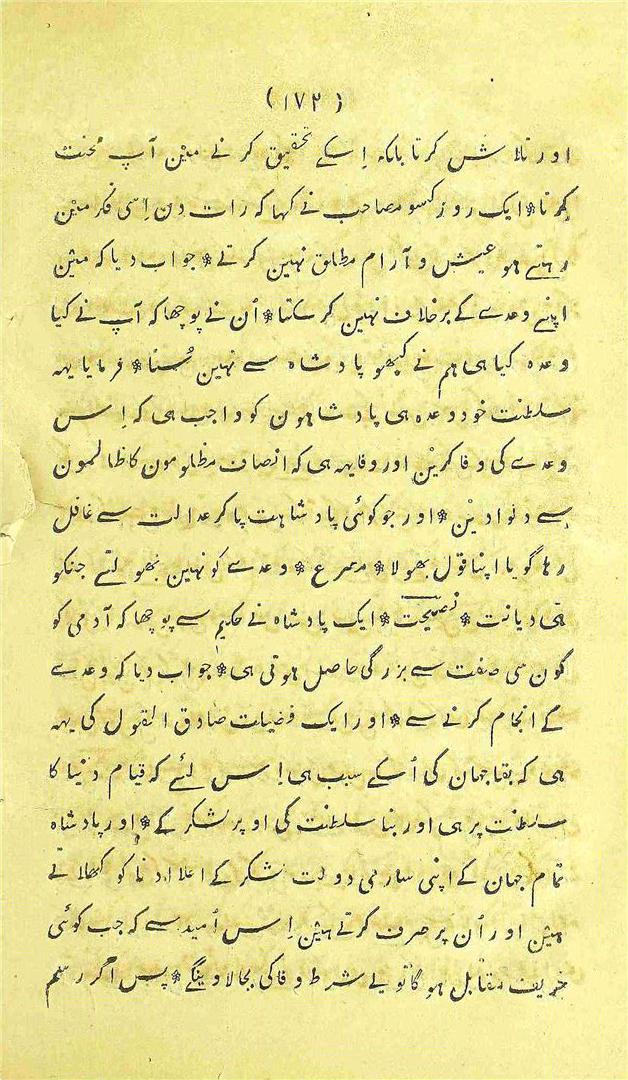 (۱۷۲)
اور تلاش کرتا بلکہ اِسکے تحقیق کرنے مین آپ محنت
کرتا * ایک روز کسو مصاحب نے کہا کہ رات دن اِسی فکر مین
رہتے ہو عیش و آرام مطلق نہین کرتے * جواب دیا کہ مین
اپنے وعدے کے برخلاف نہین کر سکتا * اُن نے پوچھا کہ آپ نے کیا
وعدہ کیا ہی ہم نے کبھو پادشاہ سے نہین سُنا * فرمایا یہہ
سلطنت خود وعدہ ہی پادشاہون کو واجب ہی کہ اِس
وعدے کی وفا کرین اور وفا یہہ ہی کہ انصاف مظلومون کا ظالمون
سے دلوادین * اور جو کوئی پادشاہت پا کر عدالت سے غافل
رہا گویا اپنا قول بھولا * مصرع * وعدے کو نہین بھولتے جنکو
ہی دیانت * نصیحت * ایک پادشاہ نے حکیم سے پوچھا کہ آدمی کو
کون سی صفت سے بزرگی حاصل ہوتی ہی * جواب دیا کہ وعدے
کے انجام کرنے سے * اور ایک فضیلت صادق القول کی یہہ
ہی کہ بقا جہان کی اُسکے سبب ہی اِس لئے کہ قیام دنیا کا
سلطنت پر ہی اور بنا سلطنت کی اوپر لشکر کے * اور پادشاہ
تمام جہان کے اپنی ساری دولت لشکر کے اعلا ادنا کو کھلاتے
ہین اور اُن پر صرف کرتے ہین اِس اُمید سے کہ جب کوئی
حریف مقابل ہوگا تو یے شرط وفا کی بجا لاوینگے * پس اگر رسم